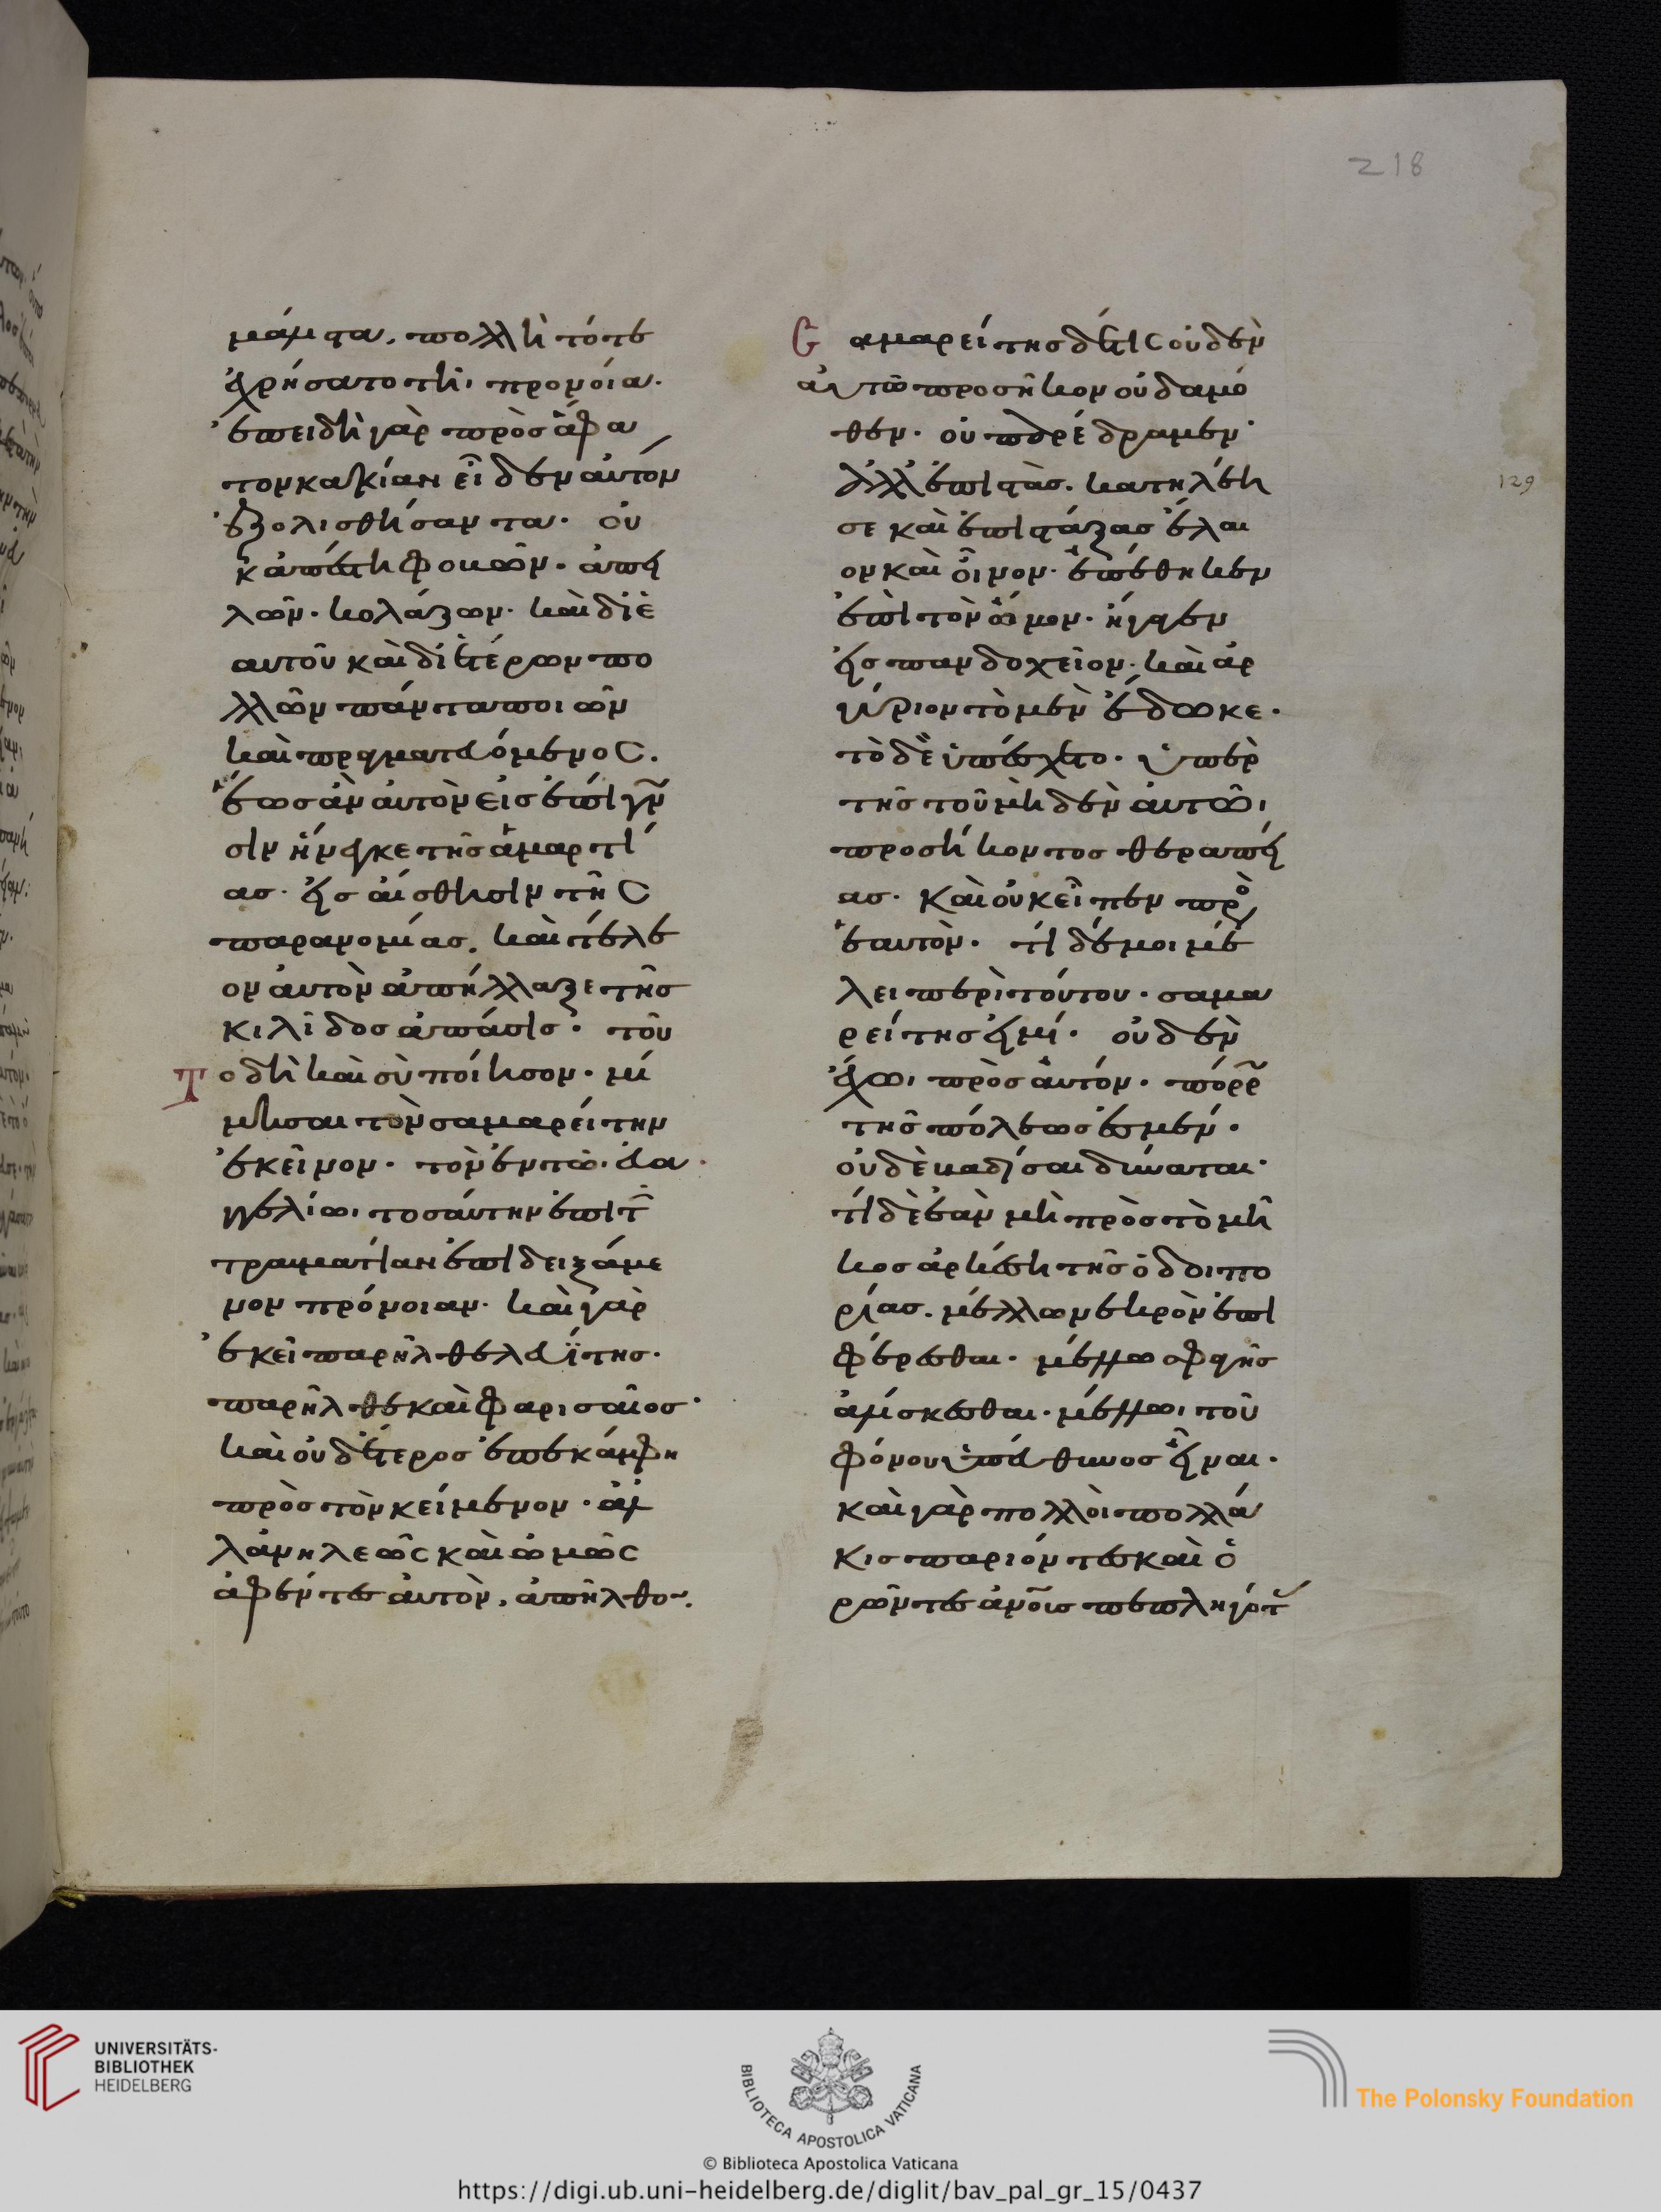 πολλὴ τότε
ἐχρήσατο τῆι προνοία·
ἐπειδὴ γὰρ πρὸσ ἄφα
τον κακίαν εἶδεν αὐτὸν
ἐξολισθήσαντα· οὐ
κ ἀπέστη φοβῶν· ἀπει
λῶν· κολάζων· καὶ δι ἑ
αυτοῦ καὶ δι ἑτέρων πο
λλῶν πάντα ποιῶν
καὶ πραγματευόμενος.
ἕωσ ἂν αὐτὸν εἰσ ἐπίγνω
σιν ἤνεγκε τῆσ ἁμαρτί
ασ· εἰσ αἴσθησιν τῆς
παρανομίασ. καὶ τέλε
ον αὐτὸν ἀπήλλαξε τῆσ
κιλῖδοσ ἁπάσησ· τοῦ
το δὴ καὶ σὺ ποίησον· μί
μησαι τὸν σαμαρείτην
ἐκεῖνον· τὸν ἐν τῶι εὐα
γγελίωι τοσαύτην ἐπὶ τ
τραυματίαν ἐπιδειξάμε
νον πρόνοιαν· καὶ γὰρ
ἐκεῖ παρῆλθε λευΐτησ·
παρῆλθε καὶ φαρισαῖοσ·
καὶ οὐδέτεροσ ἐπεκάμφη
πρὸσ τὸν κείμενον· ἀλ
λ ἀνηλεῶς καὶ ὠμῶς
ἀφέντεσ αὐτὸν, ἀπῆλθον.
Σαμαρείτησ δέ τις οὐδὲν
αὐτῶ προσῆκον οὐδαμό
θεν· οὐ παρέδραμεν·
ἀλλ ἐπιστὰσ. κατηλέη
σε καὶ ἐπιστάξασ ἔλαι
ον καὶ οἶνον· ἐπέθηκεν
ἐπὶ τὸν ὄνον· ἤγαγεν
εἰσ πανδοχεῖον· καὶ ἀρ
γύριον τὸ μὲν ἔδωκε·
τὸ δὲ ὑπέσχετο· ὑπὲρ
τῆσ τοῦ μηδὲν αὐτῶι
προσήκοντοσ θεραπεί
ασ· καὶ οὐκ εἶπεν πρὸ
ἑαυτὸν· τί δέ μοι μέ
λει περὶ τούτου· σαμα
ρείτησ εἰμί· οὐδὲν
ἔχωι πρὸσ αὐτόν· πόρρ
τῆσ πόλεωσ ἐσμέν·
οὐδὲ βαδίσαι δύναται·
τί δὲ ἐὰν μὴ πρὸσ τὸ μῆ
κοσ ἀρκέση τῆσ ὁδοιπο
ρίασ. μέλλω νεκρὸν ἐπι
φέρεσθαι· μέλλω σφαγῆσ
ἁλίσκεσθαι· μέλλωι τοῦ
φόνου ὑπεύθυνοσ εἶναι·
καὶ γὰρ πολλοὶ πολλά
κισ παριόντεσ καὶ ὁ
ρῶντεσ ἀνοισ πεπληγότ
218
129
UNIVERSITÄTS-
BIBLIOTHEK
HEIDELBERG
BIBLIOTECA APOSTOLICA VATICANA
The Polonsky Foundation
© Biblioteca Apostolica Vaticana
https://digi.ub.uni-heidelberg.de/diglit/bav_pal_gr_15/0437